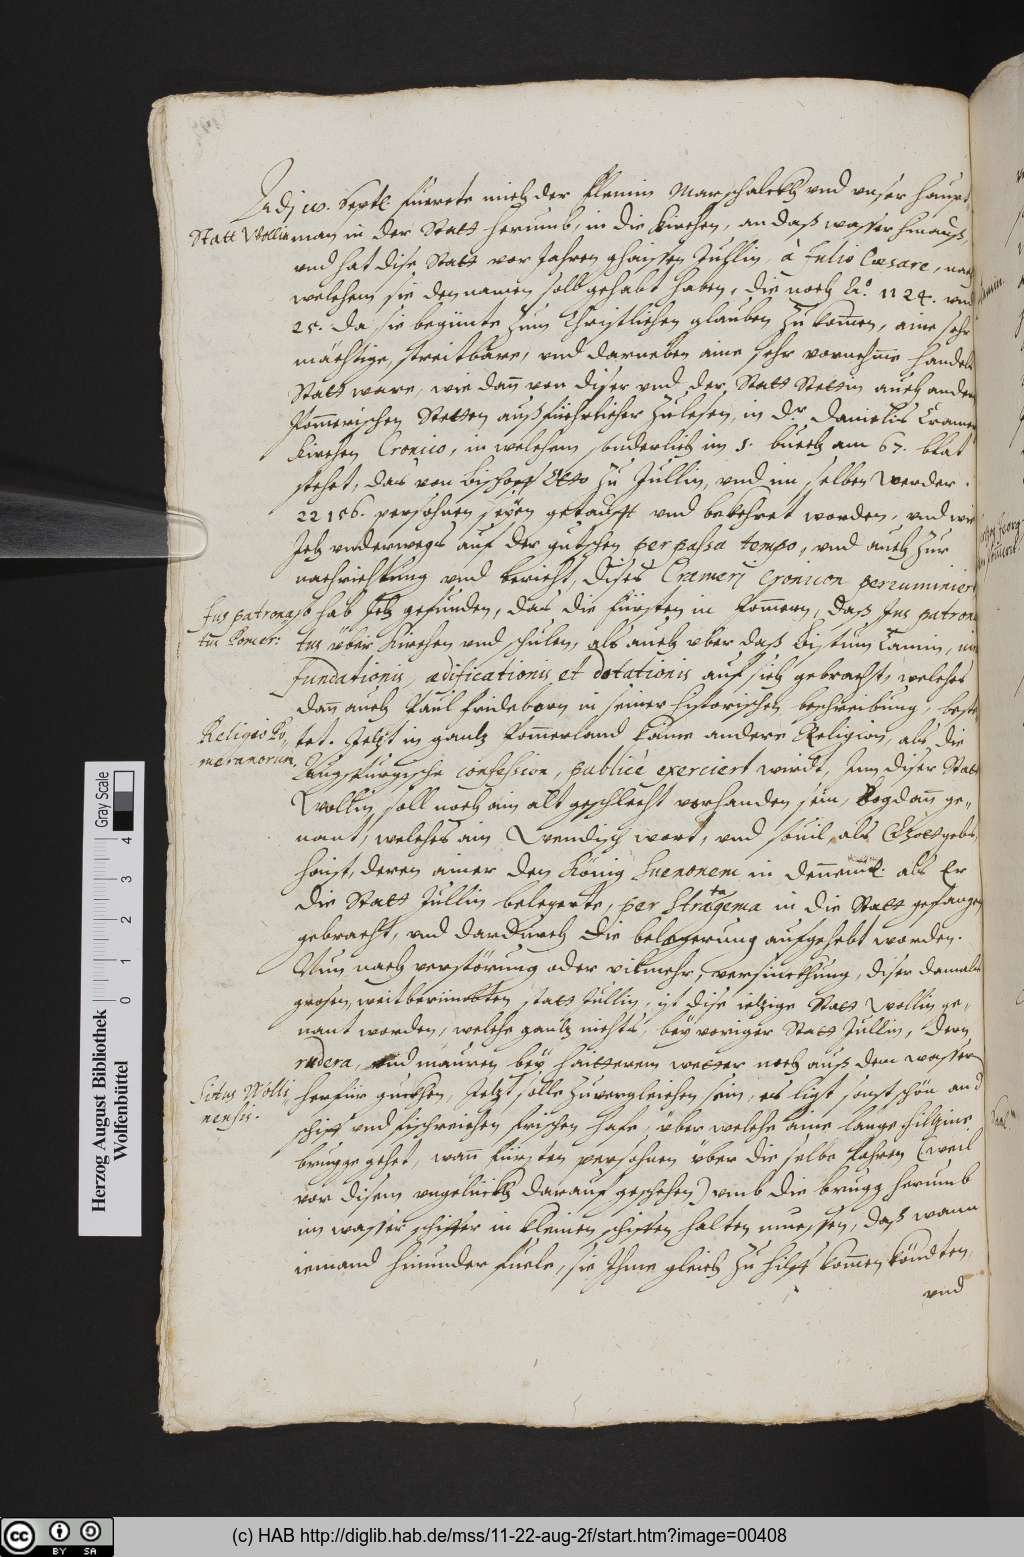 Adj 10. Septb. fuerete mich der Flemin Marschalckh vnd vnser haupt-
Statt Wollin
man in der Statt herumb, in die kirchen, an daß wasser hinauß,
vnd hat dise Statt vor Jahren ghaissen Julin, à Julio Cæsare, nach
welchem sie den namen soll gehabt haben, die noch Aõ. 1124. vnd
25. da sie begünte zum Christlichen glauben zu kom̃en, aine sehr
mächtige, streitbare, vnd darneben aine sehr vornehme handels
Statt ware, wie dan̄ von diser vnd der Statt Stettin auch andern
Pom̃erischen Stetten außfüehrlicher zulesen, in dr. Danielis Cramers
Kirchen Cronico, in welchem sonderlich im 1. buech am 67. blat
stehet, das von bischoff Otto zu Jullin, vnd im selben Werder.
22156. persohnen seyen getaufft vnd bekehret worden, vnd wie
Jch vnderwegs auf der gutschen per passa tempo, vnd auch zur
nachrichtung vnd bericht, dises Crameri Cronicon percuminiert
Jus patrona
tus Pomer:
so hab Jch gefunden, das die fürsten in Pom̃ern, daß Jus patrona
tus vber Kirchen vnd schulen, als auch vber daß bistum Camin,
fundationis, ædificationis et dotationis auf sich gebracht, welches
dan̄ auch Paul frideborn in seiner historischen beschreibung, beste
Religio Po-
meranorum.
tet. Jetzt in gantz Pom̃erland kaine andere Religion, als die
Augspurgische confession, publicè exerciert wirdt, Jnn diser Statt
Wollin soll noch ain alt geschlecht vorhanden sein, bogdan̄ ge-
nant, welches ain Wendisch wort, vnd souil als Gottgeb
haist, deren ainer den König Suenonem in Den̄emck. als Er
die Statt Jullin belegerte, per Stratagema in die Statt gefangen
gebracht, vnd dardurch die belagerung aufgehebt worden.
Nun nach verstörung oder vilmehr, versinckhung, diser damals
grosen, weitberüembten statt Jullin, ist dise ietzige Statt Wollin ge-
nant worden, welche gantz nichts, bey voriger Statt Jullin, dern
rudera, vnd mauren bey haitterem wetter noch auß dem wasser
Situs Wolli-
nensis.
herfür guckhen, Jetzt solle zuvergleichen sein, es ligt sonst schön and
schiff vnd fischreichen frischen hafe, vber welche aine lange hiltzine
brugge gehet, wan̄ fürsten persohnen vber die selbe fahren (weil
vor disem vngelückh darauf geschehen) vmb die brugg herumb
im wasser schiffer in kleinen schiffen halten muessen, daß wann
iemand hinunder fuele, sie Jhme gleich zu hilff kom̃en köndten,
vnd
Gray Scale
0 1 2 3 4
Herzog August Bibliothek
Wolfenbüttel
(c) HAB http://diglib.hab.de/mss/11-22-aug-2f/start.htm?image=00408
cc BY SA